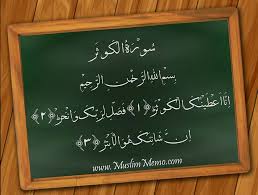 سورة الكوثر
بسم الله الرحمن الرحيم
إنا أعطينك الكوثر ﴿١﴾ فصل لربك وانحر ﴿٢﴾
إن شانئك هو الأبتر ﴿٣﴾
www.MuslimMemo.com